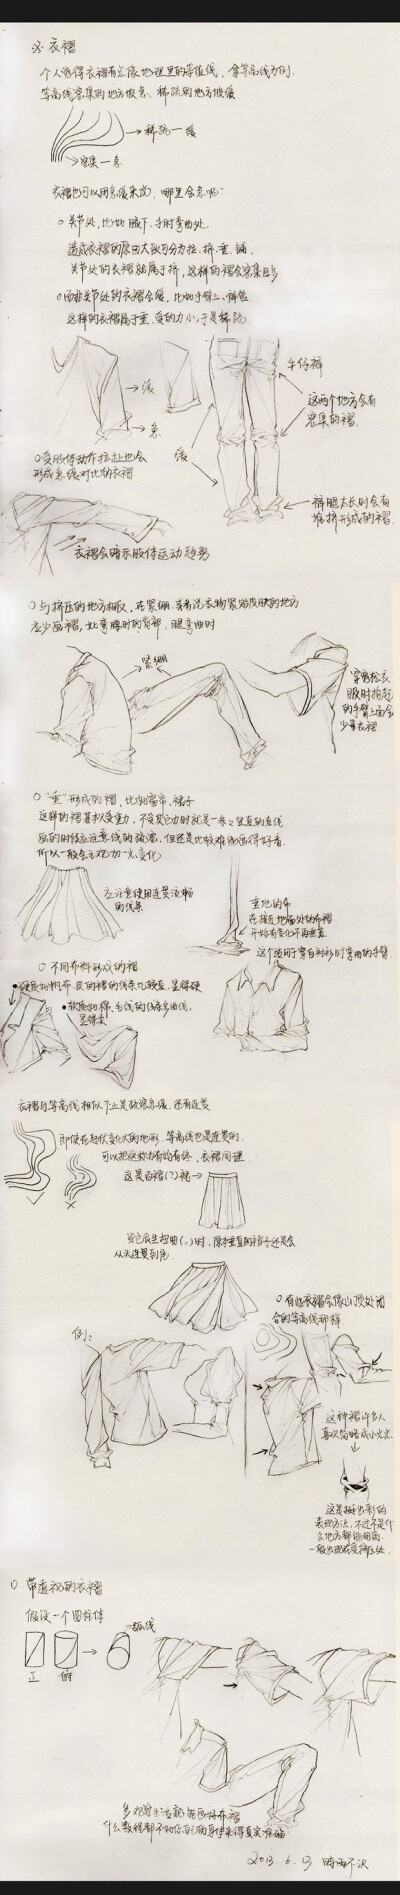 ※衣褶
个人觉得衣褶有点像地理里的等值线，拿等高线为例.
等高线密集的地方坡急、稀疏的地方坡缓
稀疏—缓
密集—急
衣褶也可以用急缓来说，哪里会急呢
○关节处，比如腋下、手肘弯曲处.
造成衣褶的原因大致可分为拉、挤、垂、
关节处的衣褶就属于挤，这样的褶会密集且多
○而非关节处的衣褶会缓，比如手臂上、裤管
这样的衣褶属于垂，受的力小，于是稀疏
缓
急
缓
牛仔裤
这两个地方会有
密集的褶
○受肢体动作拉扯也会
形成急缓对比的衣褶
裤腿太长时会有
堆挤形成的褶
衣褶会暗示肢体运动趋势
○与挤压的地方相反，在紧绷、或者说衣物紧贴皮肤的地方
应少画褶，如弯腰时的背部，腿弯曲时
紧绷
穿宽松衣
服时抬起
的手臂上面会
少量衣褶
○“垂”形成的褶，比如窗帘、裙子
这样的褶基本只受重力，不受其它力时就是一条条竖直的直线
画的时候应注意线的疏密，但还是比较难画得好看.
所以一般会主观加一点变化
应注意使用连贯流畅
的线条
垂地的布
在接近地面处的布褶
开始有变化不再垂直
这个适用于穿白衬衫时弯曲的手臂
○不同布料形成的褶
硬质如帆布、皮的褶的线条比较直，显得硬
软质如棉、毛线的线条多曲线，
显得柔
衣褶与等高线相似不止是疏密急缓，还有连贯
即使在起伏变化大的地形，等高线也是连贯的.
可以把这称为有始有终，衣褶同理
这是百褶(?)裙→
当它发生扭曲( )时，原本垂直的褶子还是会
从头连贯到尾
○有些衣褶会像山顶处闭
合的等高线那样
例：
这种褶许多人
喜欢简略成小尖尖
这是挺出彩的
表现方法，不过不是什
么地方都能用的.
一般出现在受挤压处.
○带透视的衣褶
假设一个圆柱体
弧线
正
俯
多观察生活就能画好布褶
什么教程都不如你自己两身衣来得真实准确
2013.6.13